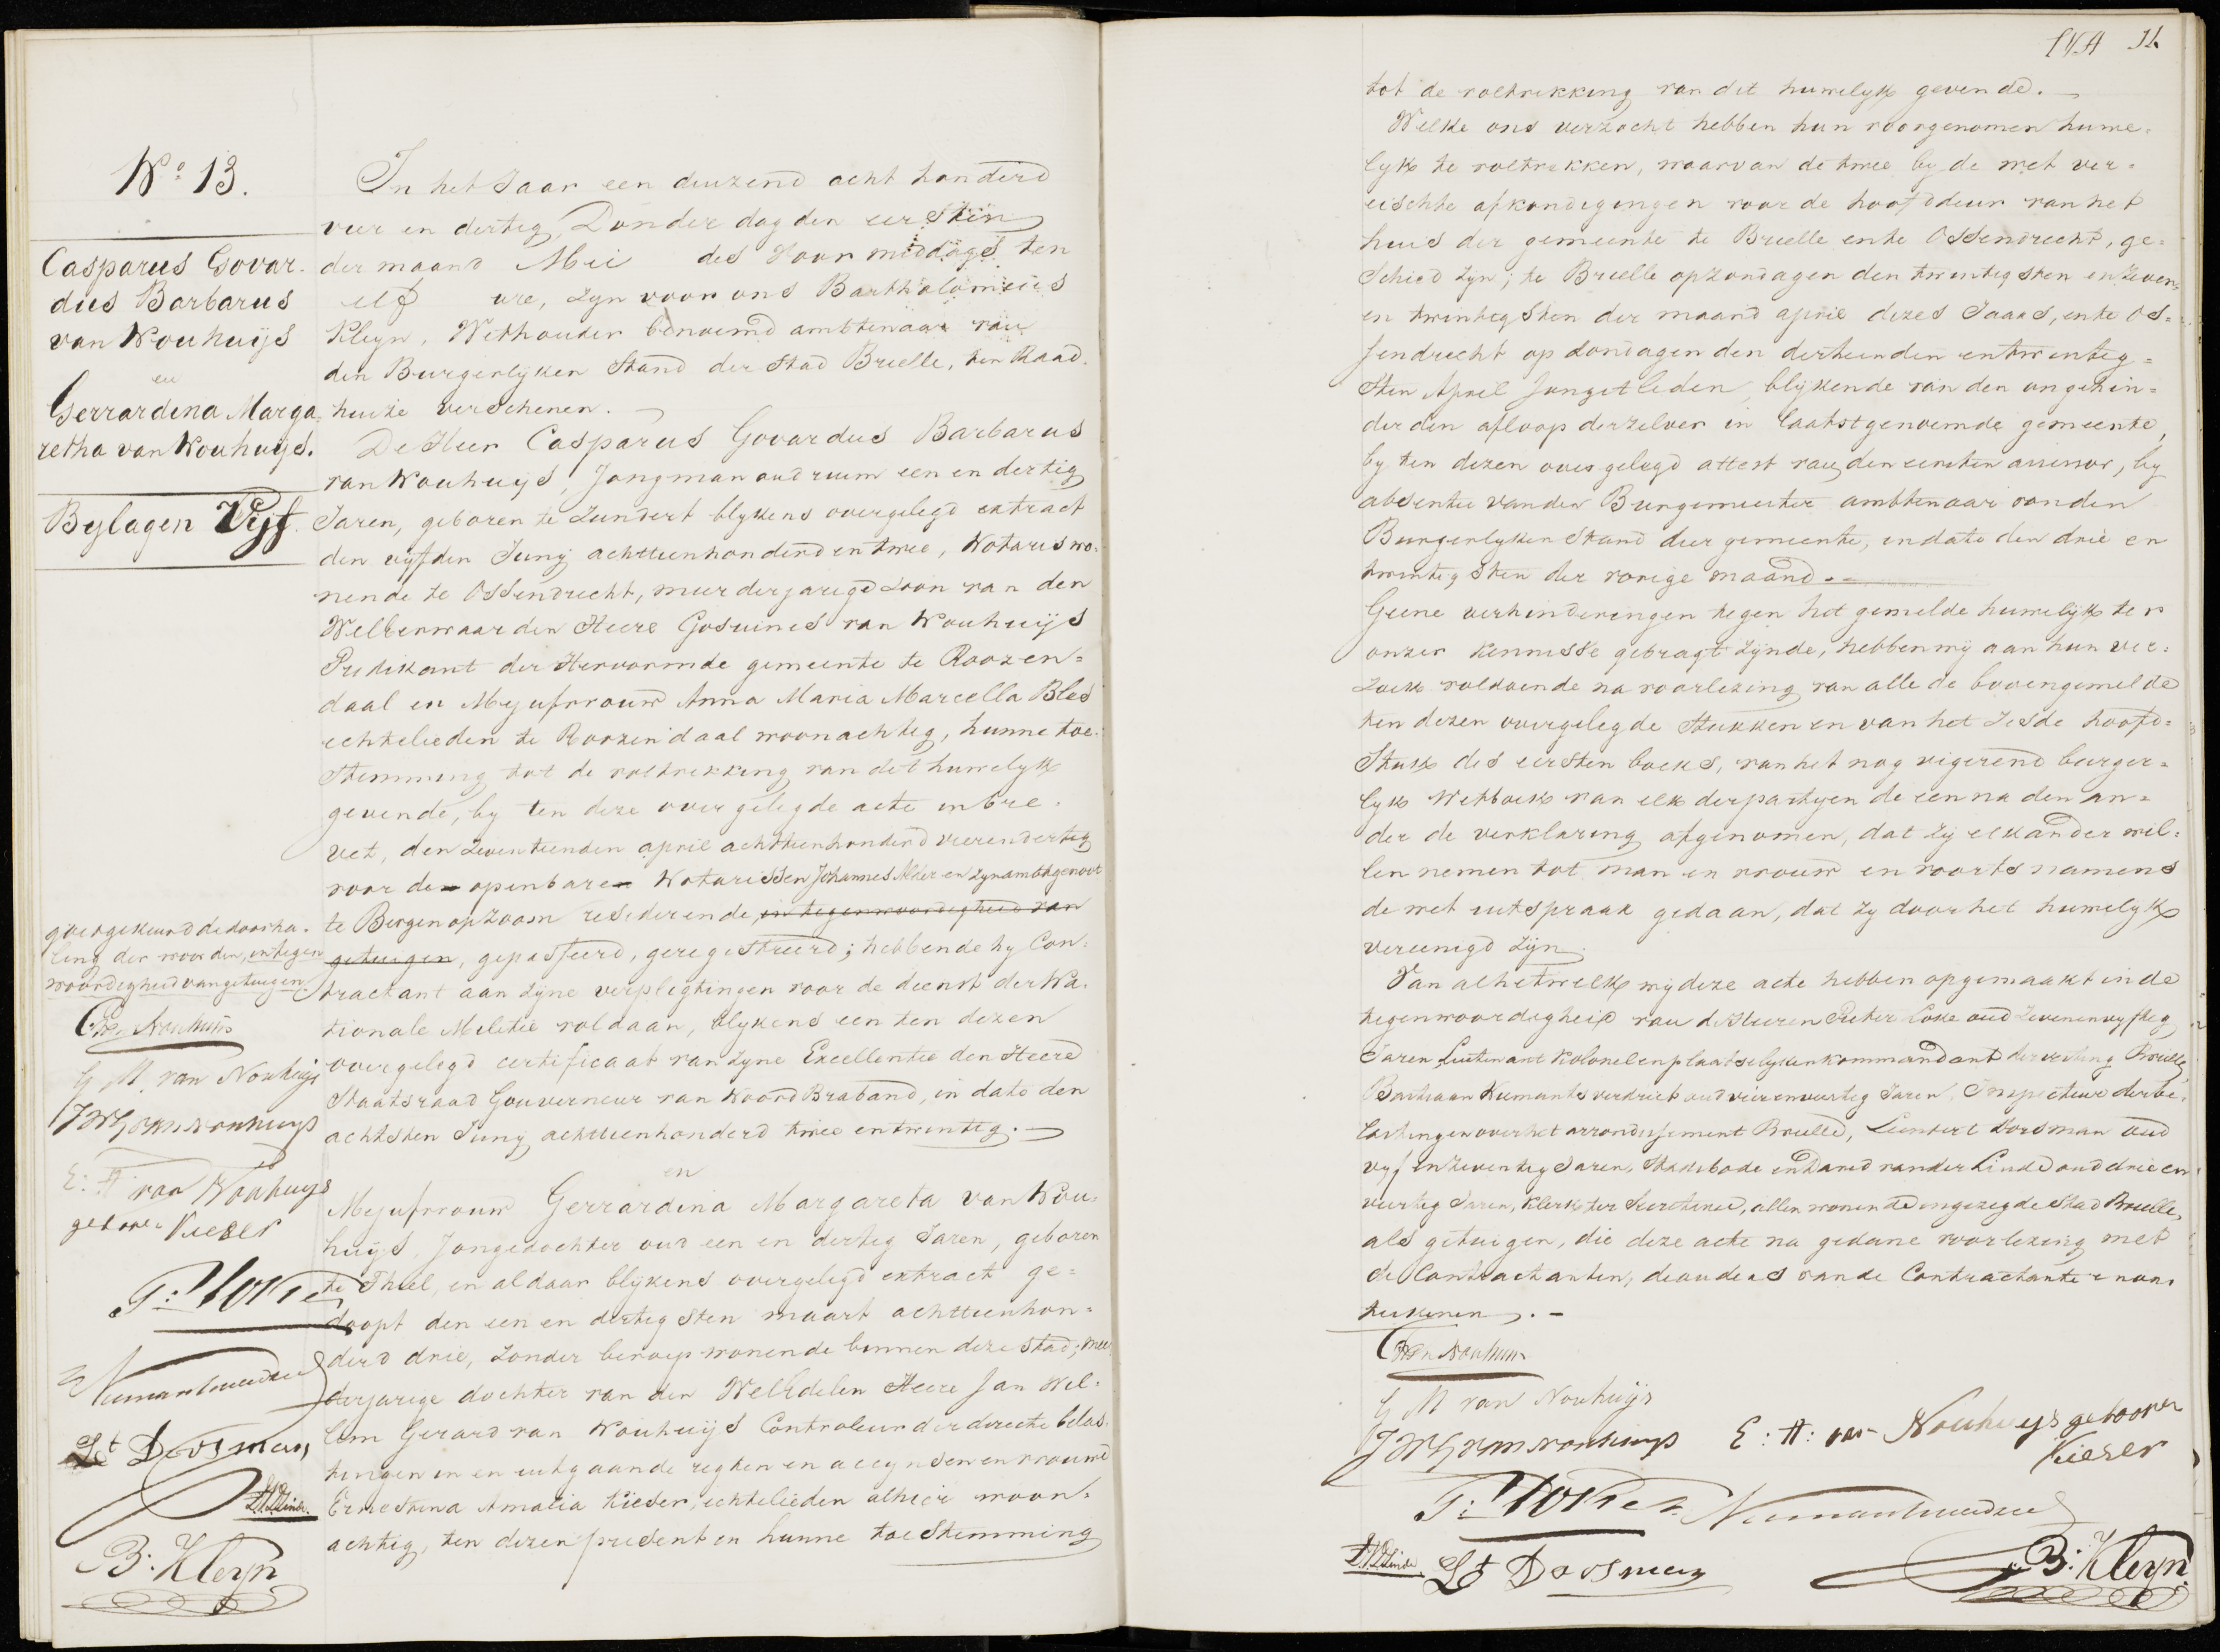 No. 13.
Casparus Govar-
dus Barbarus
van Nouhuijs
en
Gerrardina Marga
retha van Nouhuijs.
Bylagen Vijf.
goedgekeurd de doorha-
ling der woorden, in tegen
woordigheid van getuigen.
G M van Nouhuijs
E: A: van Nouhuys
geboren Kieser
Lt Dorsman
B: Kleyn
In het Jaar een duizend acht honderd
vier en dertig, Donderdag den eersten
der maand Mei des Voor middags ten
elf ure, zyn voor ons Bartholomeus
Kleyn, Wethouder benoemd ambtenaar van
den Burgerlyken Stand der Stad Brielle, ten Raad-
huize verschenen.
De Heer Casparus Govardus Barbarus
van Nouhuijs, Jongman oud ruim een en dertig
Jaren, geboren te Zundert blykens overgelegd extract
den vijfden Juny achttienhonderd en twee, Notaris wo-
nende te Ossendrecht, meerderjarige Zoon van den
Weleerwaarden Heere Gosuinus van Nouhuijs
Predikant der Hervormde gemeente te Roozen=
daal en Mejufvrouw Anna Maria Marcella Bles
echtelieden te Roozendaal woonachtig, hunne toe-
stemming tot de voltrekking van dit huwelyk
gevende, by ten deze over gelegde acte in bre-
vet, den Zeventienden april achttienhonderd vierendertig
voor de openbare Notarissen Johannes Maier en Zyn ambtgenoot
te Bergen op Zoom residerende, in tegenwoordigheid van
getuigen, gepasseerd, geregistreerd; hebbende hy Con-
tractant aan zyne verpligtingen voor de dienst der Na-
tionale Militie voldaan, blykens een ten dezen
overgelegd certificaat van zyne Excellentie den Heere
Staatsraad Gouverneur van Noord Braband, in dato den
achtsten Juny achttienhonderd twee en twintig.
en
Mejufvrouw Gerrardina Margareta van Nou-
huijs, Jongedochter oud een en dertig Jaren, geboren
te Thiel, en aldaar blykens overgelegd extract ge=
doopt den een en dertigsten maart achttienhon-
derd drie, zonder beroep wonende binnen deze stad; meer-
derjarige dochter van den WelEdelen Heere Jan Wil-
lem Gerard van Nouhuijs Controleur der directe belas-
tingen in en uitgaande regten en accynsen en vrouwe
Ernestina Amalia Kieser, echtelieden alhier woon-
achtig, ten dezen present en hunne toestemming
tot de voltrekking van dit huwelyk gevende.
Welke ons verzocht hebben hun voorgenomen huwe-
lyk te voltrekken, waarvan de twee by de wet ver=
eischte afkondigingen voor de hoofddeur van het
huis der gemeente te Brielle en te Ossendrecht, ge=
schied zyn; te Brielle op zondagen den twintigsten en zeven
en twintigsten der maand april dezes Jaars, en te Os=
sendrecht op Zondagen den dertienden en twintig=
sten April Jongstleden, blykende van den ongehin=
derden afloop derzelver in laatstgenoemde gemeente,
by ten dezen overgelegd attest van den eersten assessor, by
absentie van den Burgemeester ambtenaar van den
Burgerlyken Stand dier gemeente, in dato den drie en
twintigsten der vorige maand.
Geene verhinderingen tegen het gemelde huwelyk ter
onzer kennisse gebragt zynde, hebben wij aan hun ver-
zoek voldoende na voorlezing van alle de bovengemelde
ten dezen overgelegde Stukken en van het Zesde hoofd=
stuk des eersten boeks, van het nog vigerend burger=
lyk Wetboek van elk der partyen de een na den an=
der de verklaring afgenomen, dat zij elkander wil-
len nemen tot man en vrouw en voorts namens
de wet uitspraak gedaan, dat zy door het huwelyk
vereenigd zijn.
Van al hetwelk wij deze acte hebben opgemaakt in de
tegenwoordigheid van de Heeren Pieter Loke oud Zevenenvyftig
Jaren Luitenant Kolonel en plaatselyken kommandant der vesting Brielle
Bastiaan Niemantsverdriet oud vierenveertig Jaren, Inspecteur der be-
lastingen over het arrondissement Brielle, Leendert Dorsman oud
vyf en zeventig Jaren, Stadsbode en David van der Linde oud drie en
veertig Jaren, Klerk ter Secretarie, allen wonende in gezegde Stad Brielle,
als getuigen, die deze acte na gedane voorlezing met
de Contractanten, de ouders van de Contractante en ons
teekenen.
G M van Nouhuijs
E: A: van Nouhuys geboren
Kieser
Lt Dorsman
B: Kleyn